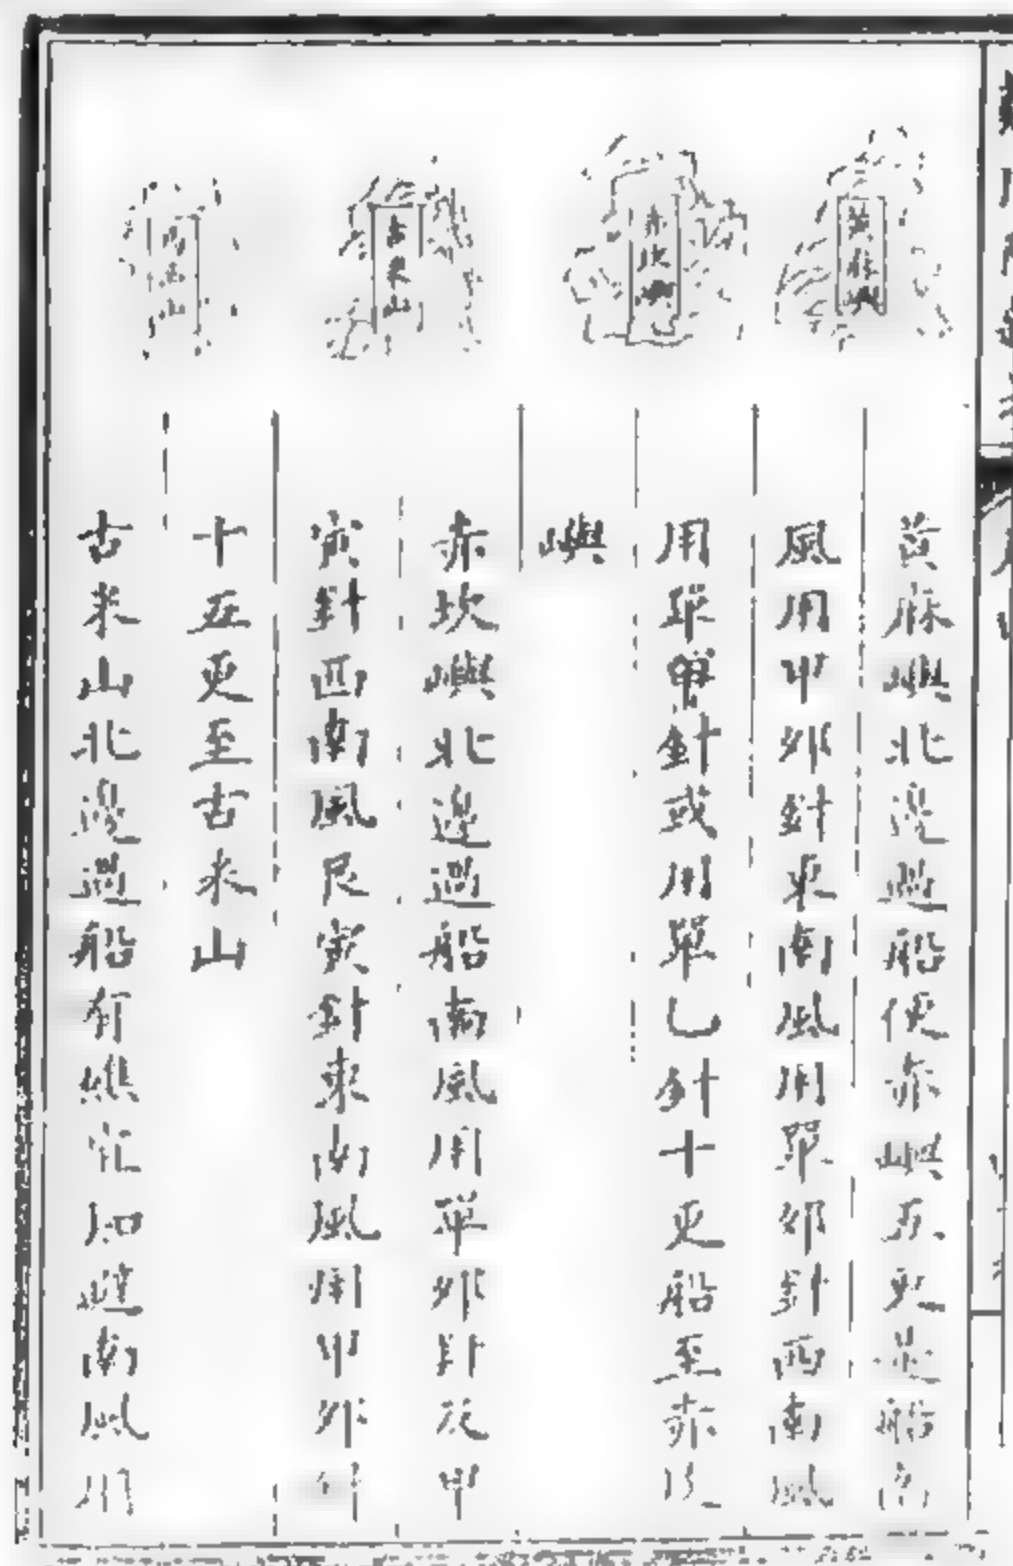 黄麻嶼
赤坎嶼
古米山
馬齒山
黄麻嶼北邊過船便赤嶼五更是船南
風用甲卯針東南風用單卯針西南風
用單甲針或用單乙針十更船至赤坎
嶼
赤坎嶼北邊過船南風用單卯針及甲
寅針西南風艮寅針東南風用甲卯針
十五更至古米山
古米山北邊過船有礁宜知避南風用